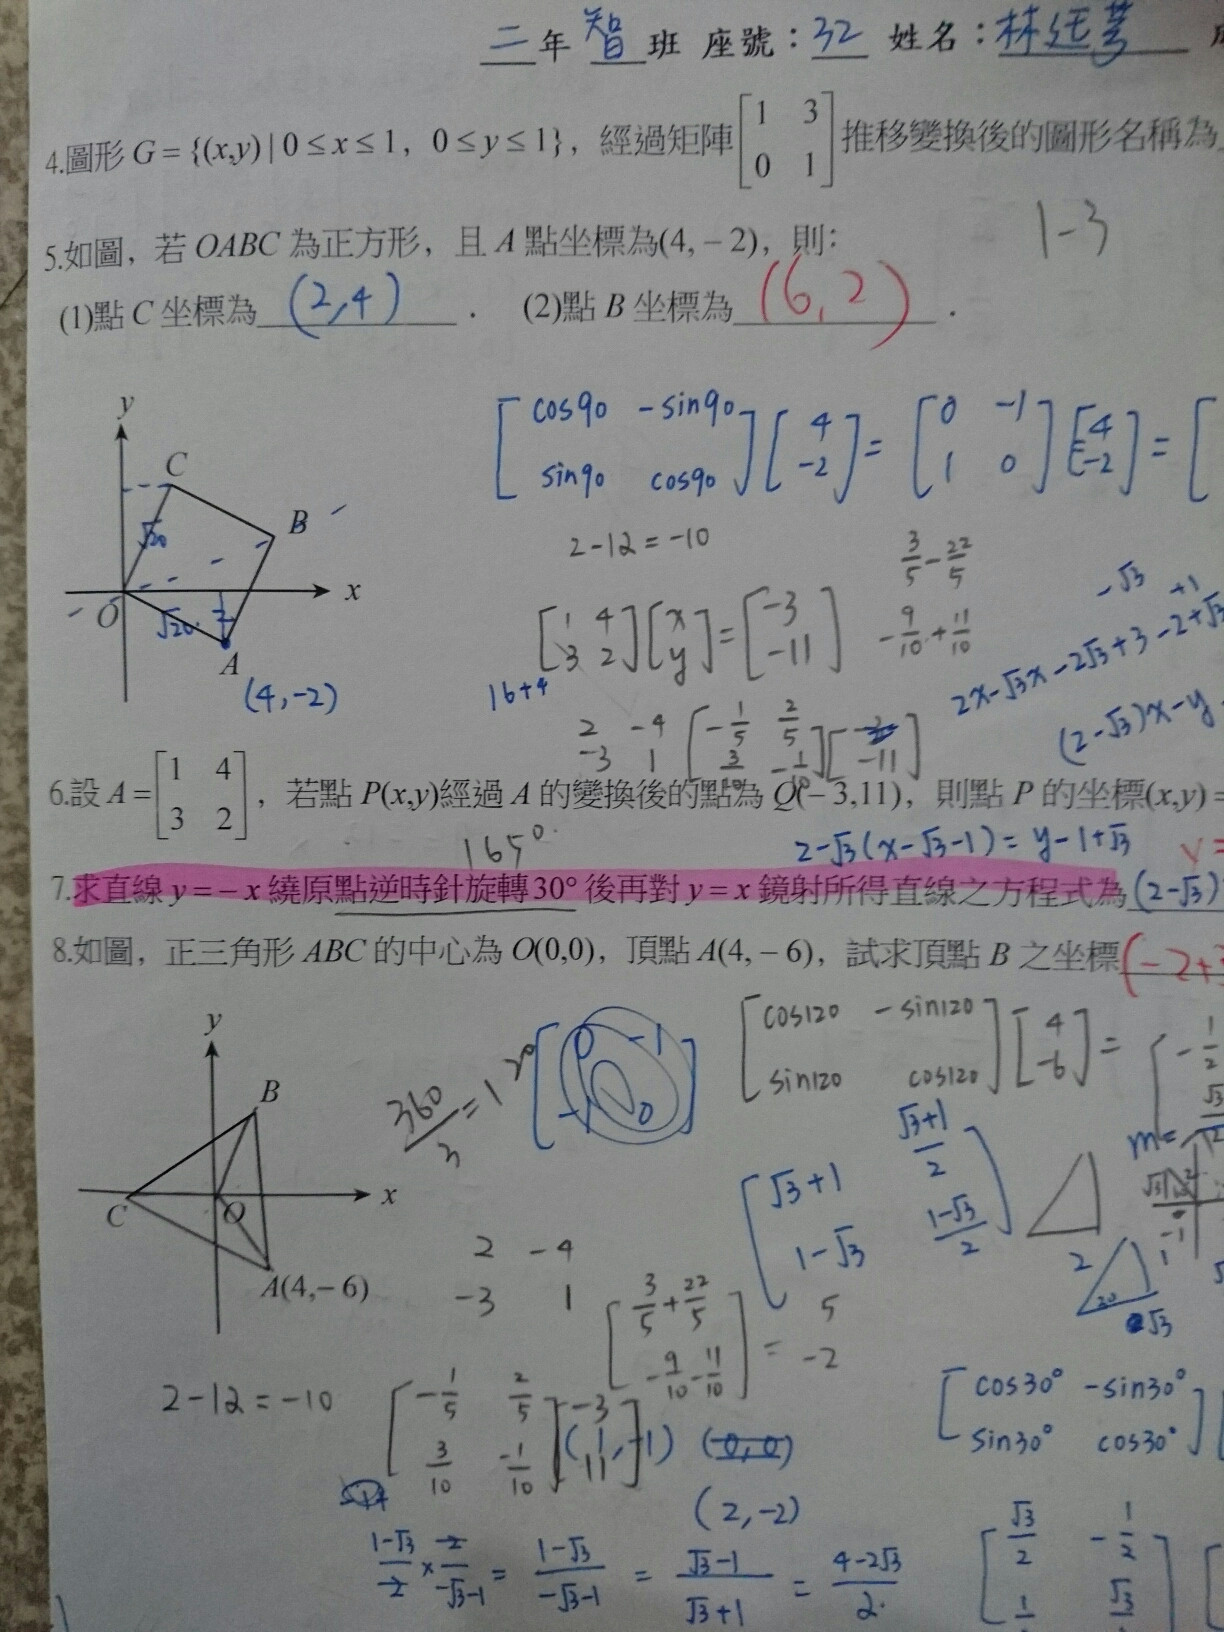 二年 智 班 座號：32 姓名：林廷
4.圖形 G = {(x,y) | 0 ≤ x ≤ 1, 0 ≤ y ≤ 1}，經過矩陣 [1 3; 0 1] 推移變換後的圖形名稱為
1-3
5.如圖，若 OABC 為正方形，且 A 點坐標為(4, – 2)，則：
(1)點 C 坐標為 (2,4) . (2)點 B 坐標為 (6,2) .
[cos90 -sin90; sin90 cos90] [4; -2] = [0 -1; 1 0] [4; -2] = [
y
C
B
√20
O
x
√20
A
(4,-2)
2-12=-10
3/5 - 22/5
[1 4; 3 2] [x; y] = [-3; -11]
-9/10 + 11/10
-√3 +1
16+4
2x-√3x-2√3+3-2+√3
(2-√3)x-y
2 -4
-3 1
[-1/5 2/5; 3/10 -1/10] [-3; -11]
6.設 A = [1 4; 3 2]，若點 P(x,y)經過 A 的變換後的點為 Q(– 3,11)，則點 P 的坐標(x,y) =
165°
2-√3(x-√3-1)=y-1+√3
y=
7.求直線 y = – x 繞原點逆時針旋轉 30° 後再對 y = x 鏡射所得直線之方程式為 (2-√3)
8.如圖，正三角形 ABC 的中心為 O(0,0)，頂點 A(4, – 6)，試求頂點 B 之坐標 (-2+3
y
B
C
O
x
A(4,– 6)
360/3 = 120
[0 -1; -1 0]
[cos120 -sin120; sin120 cos120] [4; -6] = [-1/2
√3/2
m=
√3+1
1-√3
√3+1/2
1-√3/2
2
1
30
√3
2 -4
-3 1
[3/5 + 22/5; -9/10 - 11/10] = 5
-2
2-12=-10
[-1/5 2/5; 3/10 -1/10] [-3; 11]
(1,-1) (0,0)
(2,-2)
[cos30° -sin30°; sin30° cos30°]
1-√3/-2 × -2/-√3-1 = 1-√3/-√3-1 = √3-1/√3+1 = 4-2√3/2
[√3/2 -1/2; 1 √3]